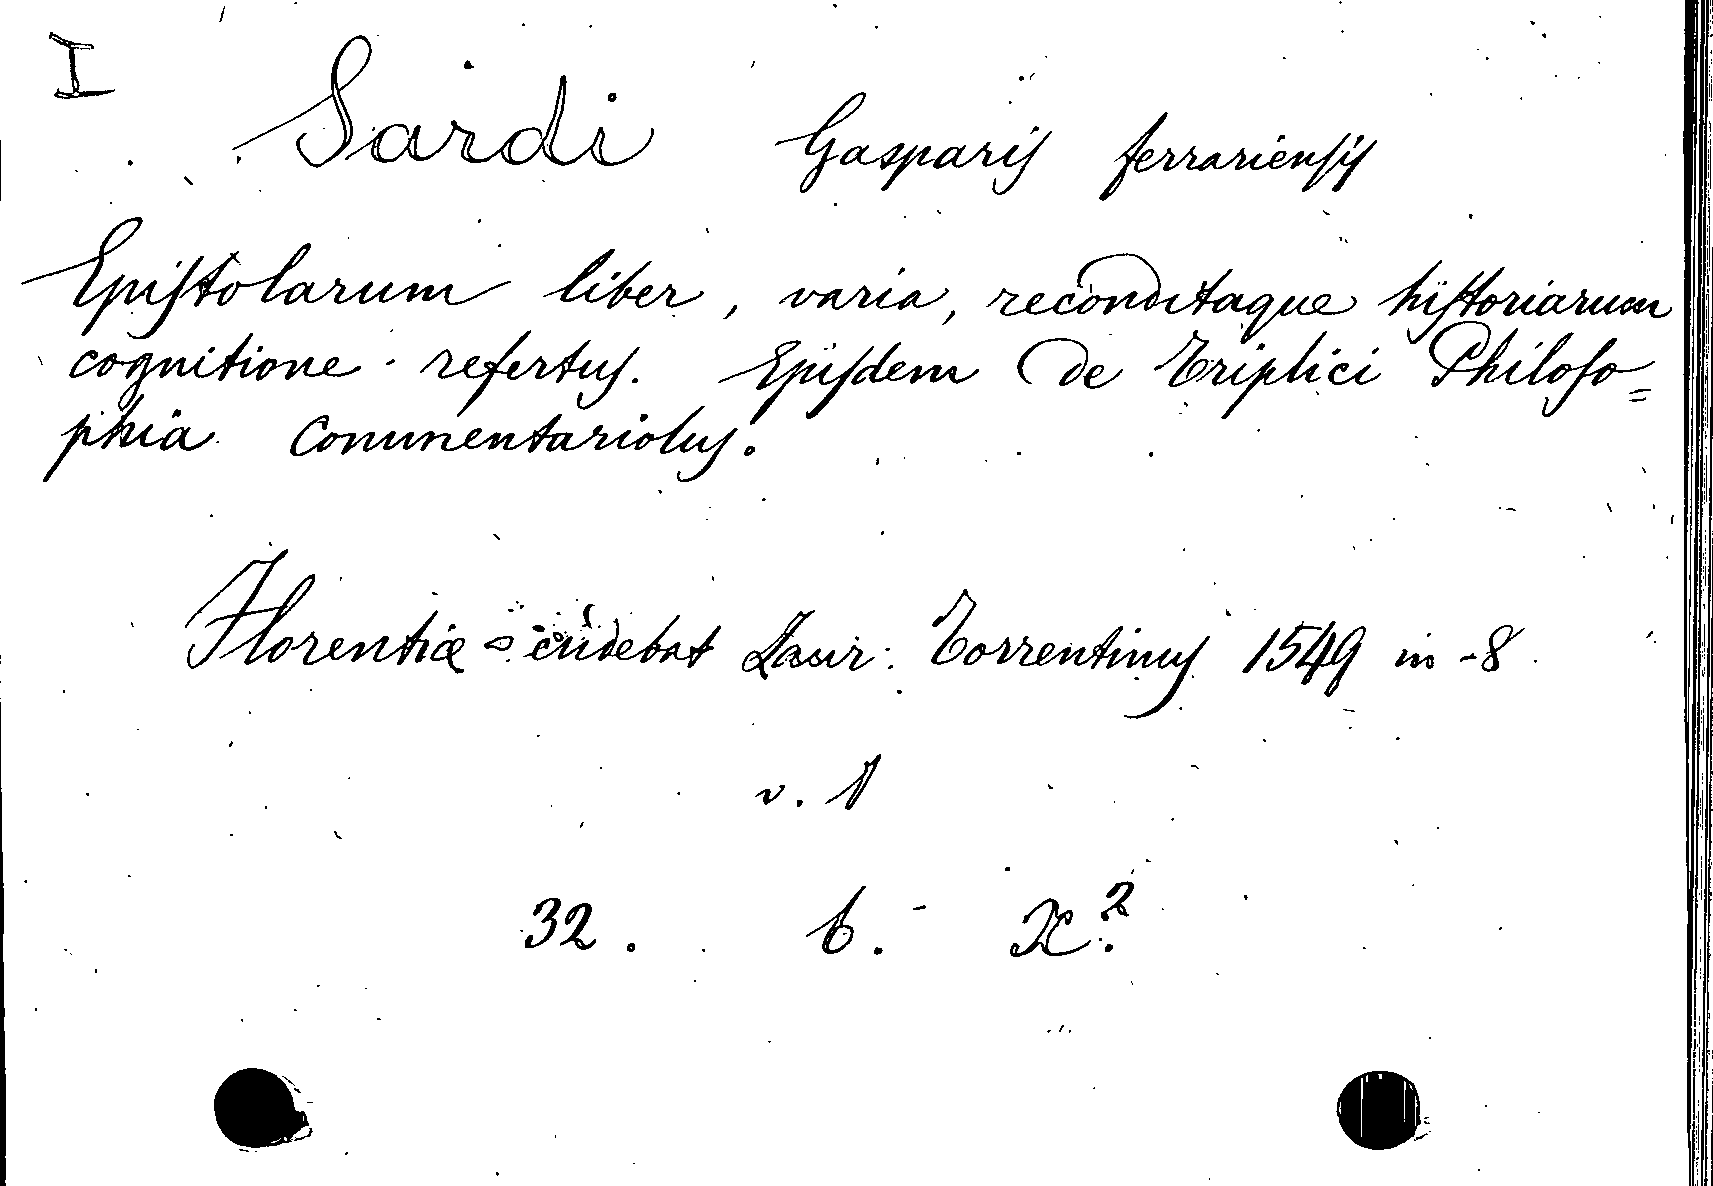 I
Sardi Gasparis ferrariensis
Epistolarum liber, varia, reconditaque historiarum
cognitione refertus. Ejusdem De Triplici Philoso=
phia Commentariolus.
Florentiæ cudebat Laur: Torrentinus 1549 in -8
v. 1
32. 6.